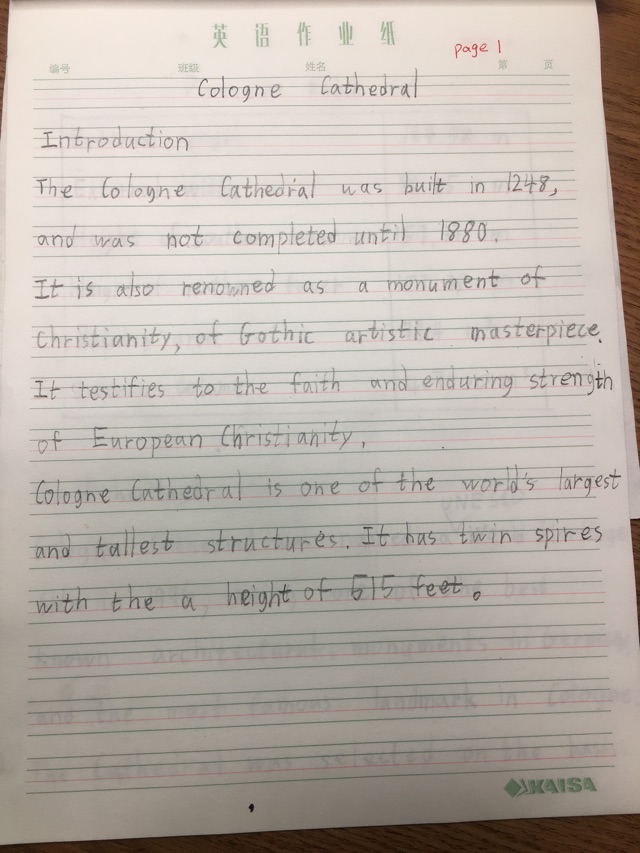 英语作业纸
page 1
编号 班级 姓名 第 页
Cologne Cathedral
Introduction
The Cologne Cathedral was built in 1248,
and was not completed until 1880.
It is also renowned as a monument of
Christianity, of Gothic artistic masterpiece.
It testifies to the faith and enduring strength
of European Christianity.
Cologne Cathedral is one of the world's largest
and tallest structures. It has twin spires
with the a height of 515 feet.
known architectural monuments in German
and the most famous landmark in Cologne.
The Cathedral was selected on the
KAISA